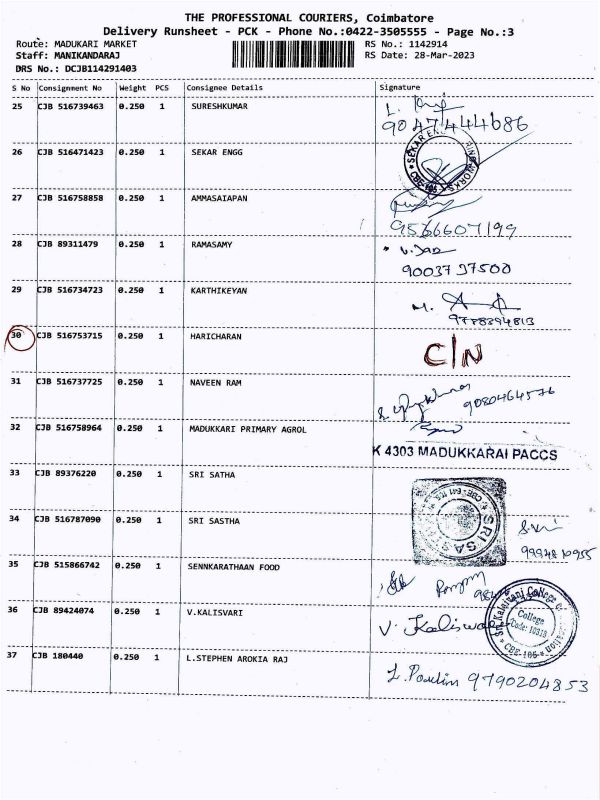 THE PROFESSIONAL COURIERS, Coimbatore
Delivery Runsheet - PCK - Phone No.:0422-3505555 - Page No.:3
Route: MADUKARI MARKET RS No.: 1142914
Staff: MANIKANDARAJ RS Date: 28-Mar-2023
DRS No.: DCJB114291403
S No Consignment No Weight PCS Consignee Details Signature
25 CJB 516739463 0.250 1 SURESHKUMAR
9047444686
26 CJB 516471423 0.250 1 SEKAR ENGG
27 CJB 516758858 0.250 1 AMMASAIAPAN
9566607199
28 CJB 89311479 0.250 1 RAMASAMY
90037 37500
29 CJB 516734723 0.250 1 KARTHIKEYAN
M.
9778394813
30 CJB 516753715 0.250 1 HARICHARAN C/N
31 CJB 516737725 0.250 1 NAVEEN RAM
9080464576
32 CJB 516758964 0.250 1 MADUKKARI PRIMARY AGROL
K 4303 MADUKKARAI PACCS
33 CJB 89376220 0.250 1 SRI SATHA
34 CJB 516787090 0.250 1 SRI SASTHA
35 CJB 515866742 0.250 1 SENNKARATHAAN FOOD
36 CJB 89424074 0.250 1 V.KALISVARI V. Kaliswari
College
Code: 10318
CBE-105
37 CJB 180440 0.250 1 L.STEPHEN AROKIA RAJ
9790204853